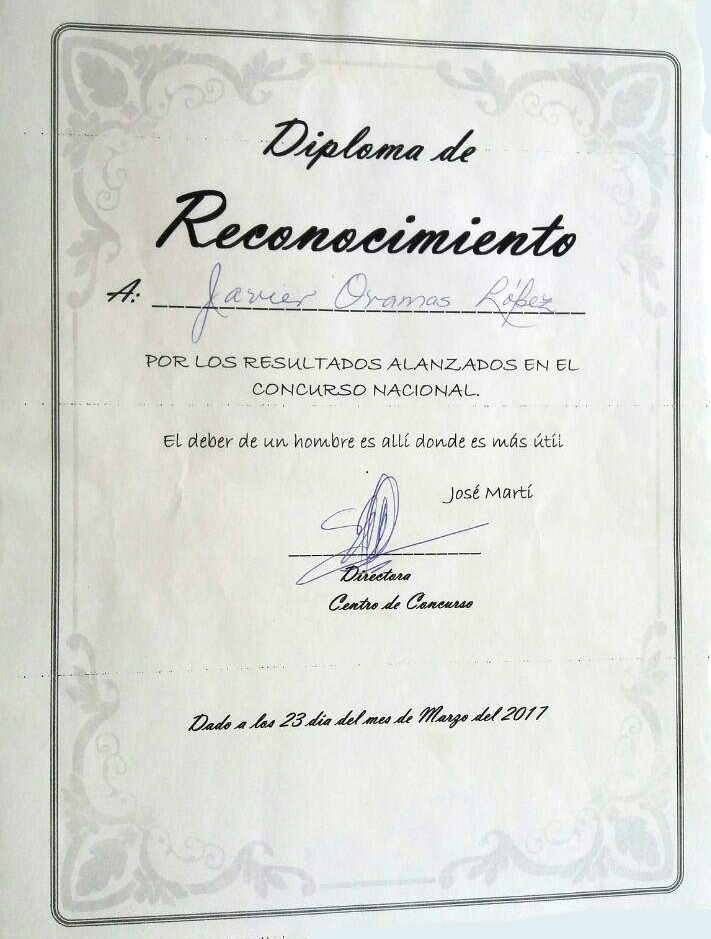 Diploma de
Reconocimiento
A: Javier Oramas López
POR LOS RESULTADOS ALANZADOS EN EL
CONCURSO NACIONAL.
El deber de un hombre es allí donde es más útil
José Martí
Directora
Centro de Concurso
Dado a los 23 dia del mes de Marzo del 2017